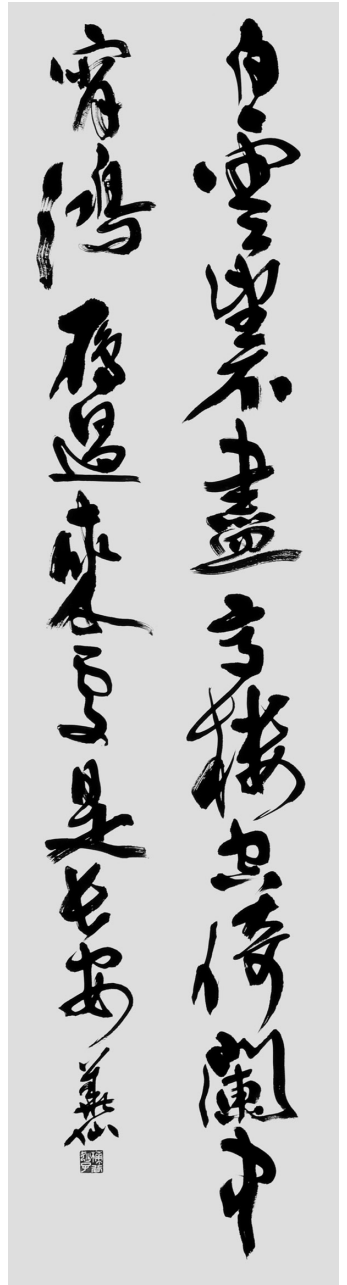 白雲望不盡高樓空倚闌中
宵鴻鴈過來處是長安
華仙